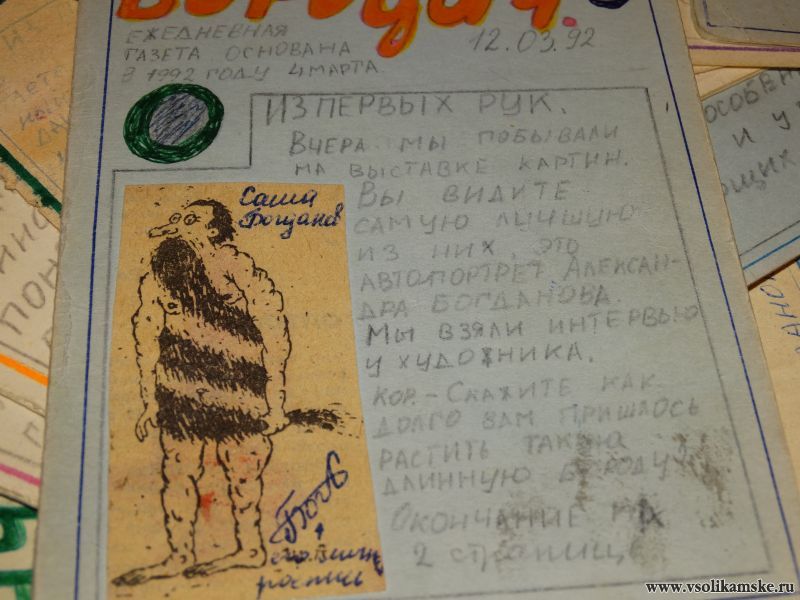 Бородач.
ЕЖЕДНЕВНАЯ
ГАЗЕТА ОСНОВАНА
В 1992 ГОДУ 4 МАРТА
12.03.92
ИЗ ПЕРВЫХ РУК.
ВЧЕРА МЫ ПОБЫВАЛИ
НА ВЫСТАВКЕ КАРТИН.
ВЫ ВИДИТЕ
САМУЮ ЛУЧШУЮ
ИЗ НИХ. ЭТО
АВТОПОРТРЕТ АЛЕКСАН-
ДРА БОГДАНОВА
МЫ ВЗЯЛИ ИНТЕРВЬЮ
У ХУДОЖНИКА.
КОР.-СКАЖИТЕ КАК
ДОЛГО ВАМ ПРИШЛОСЬ
РАСТИТЬ ТАКУЮ
ДЛИННУЮ БОРОДУ?
ОКОНЧАНИЕ НА
2 СТРАНИЦЕ
Саша
Богданов
роспись
ОСОБЕН
И У
ПОН
www.vsolikamske.ru